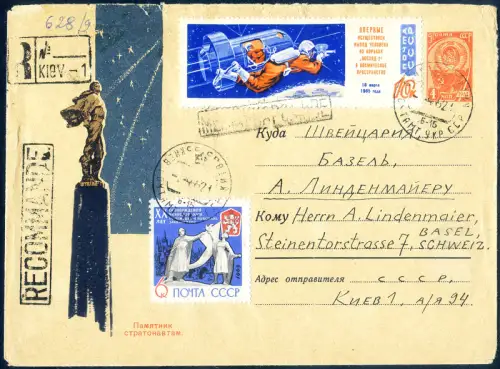 628/9
R
№
KIEV — 1
RECOMMANDÉ
ВПЕРВЫЕ
ОСУЩЕСТВЛЕН
ВЫХОД ЧЕЛОВЕКА
ИЗ КОРАБЛЯ
"ВОСХОД-2"
В КОСМИЧЕСКОЕ
ПРОСТРАНСТВО
18 марта
1965 года
10к
4
Куда Швейцария
Базель,
А. Линденмайеру
Кому Herrn A. Lindenmaier,
BASEL,
Steinentorstrasse 7, SCHWEIZ.
Адрес отправителя СССР,
Киев 1, а/я 94.
XX
ЛЕТ
6к ПОЧТА СССР
Памятник
стратонавтам.